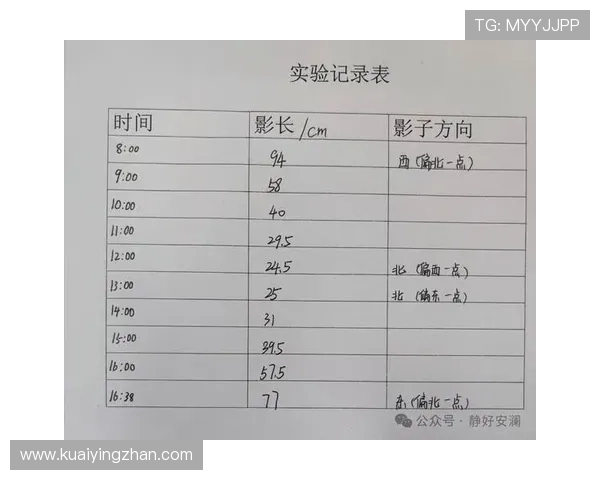 TG: MYYJJPP
实验记录表
时间 影长/cm 影子方向
8:00 94 西(偏北一点)
9:00 58
10:00 40
11:00 29.5
12:00 24.5 北(偏西一点)
13:00 25 北(偏东一点)
14:00 31
15:00 39.5
16:00 57.5
16:38 77 东(偏北一点)
公众号·静好安澜
www.kuaiyingzhan.com